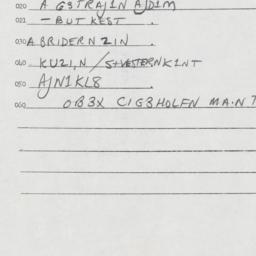 020 A G3TRAJ1N AJD1M
021 — BUT KEST .
030 A BRIDERN Z IN .
040 KUZI,N / S+VESTERNK1NT
050 AJN1KL8
060 OB3X CIG3HOLEN MA.NT